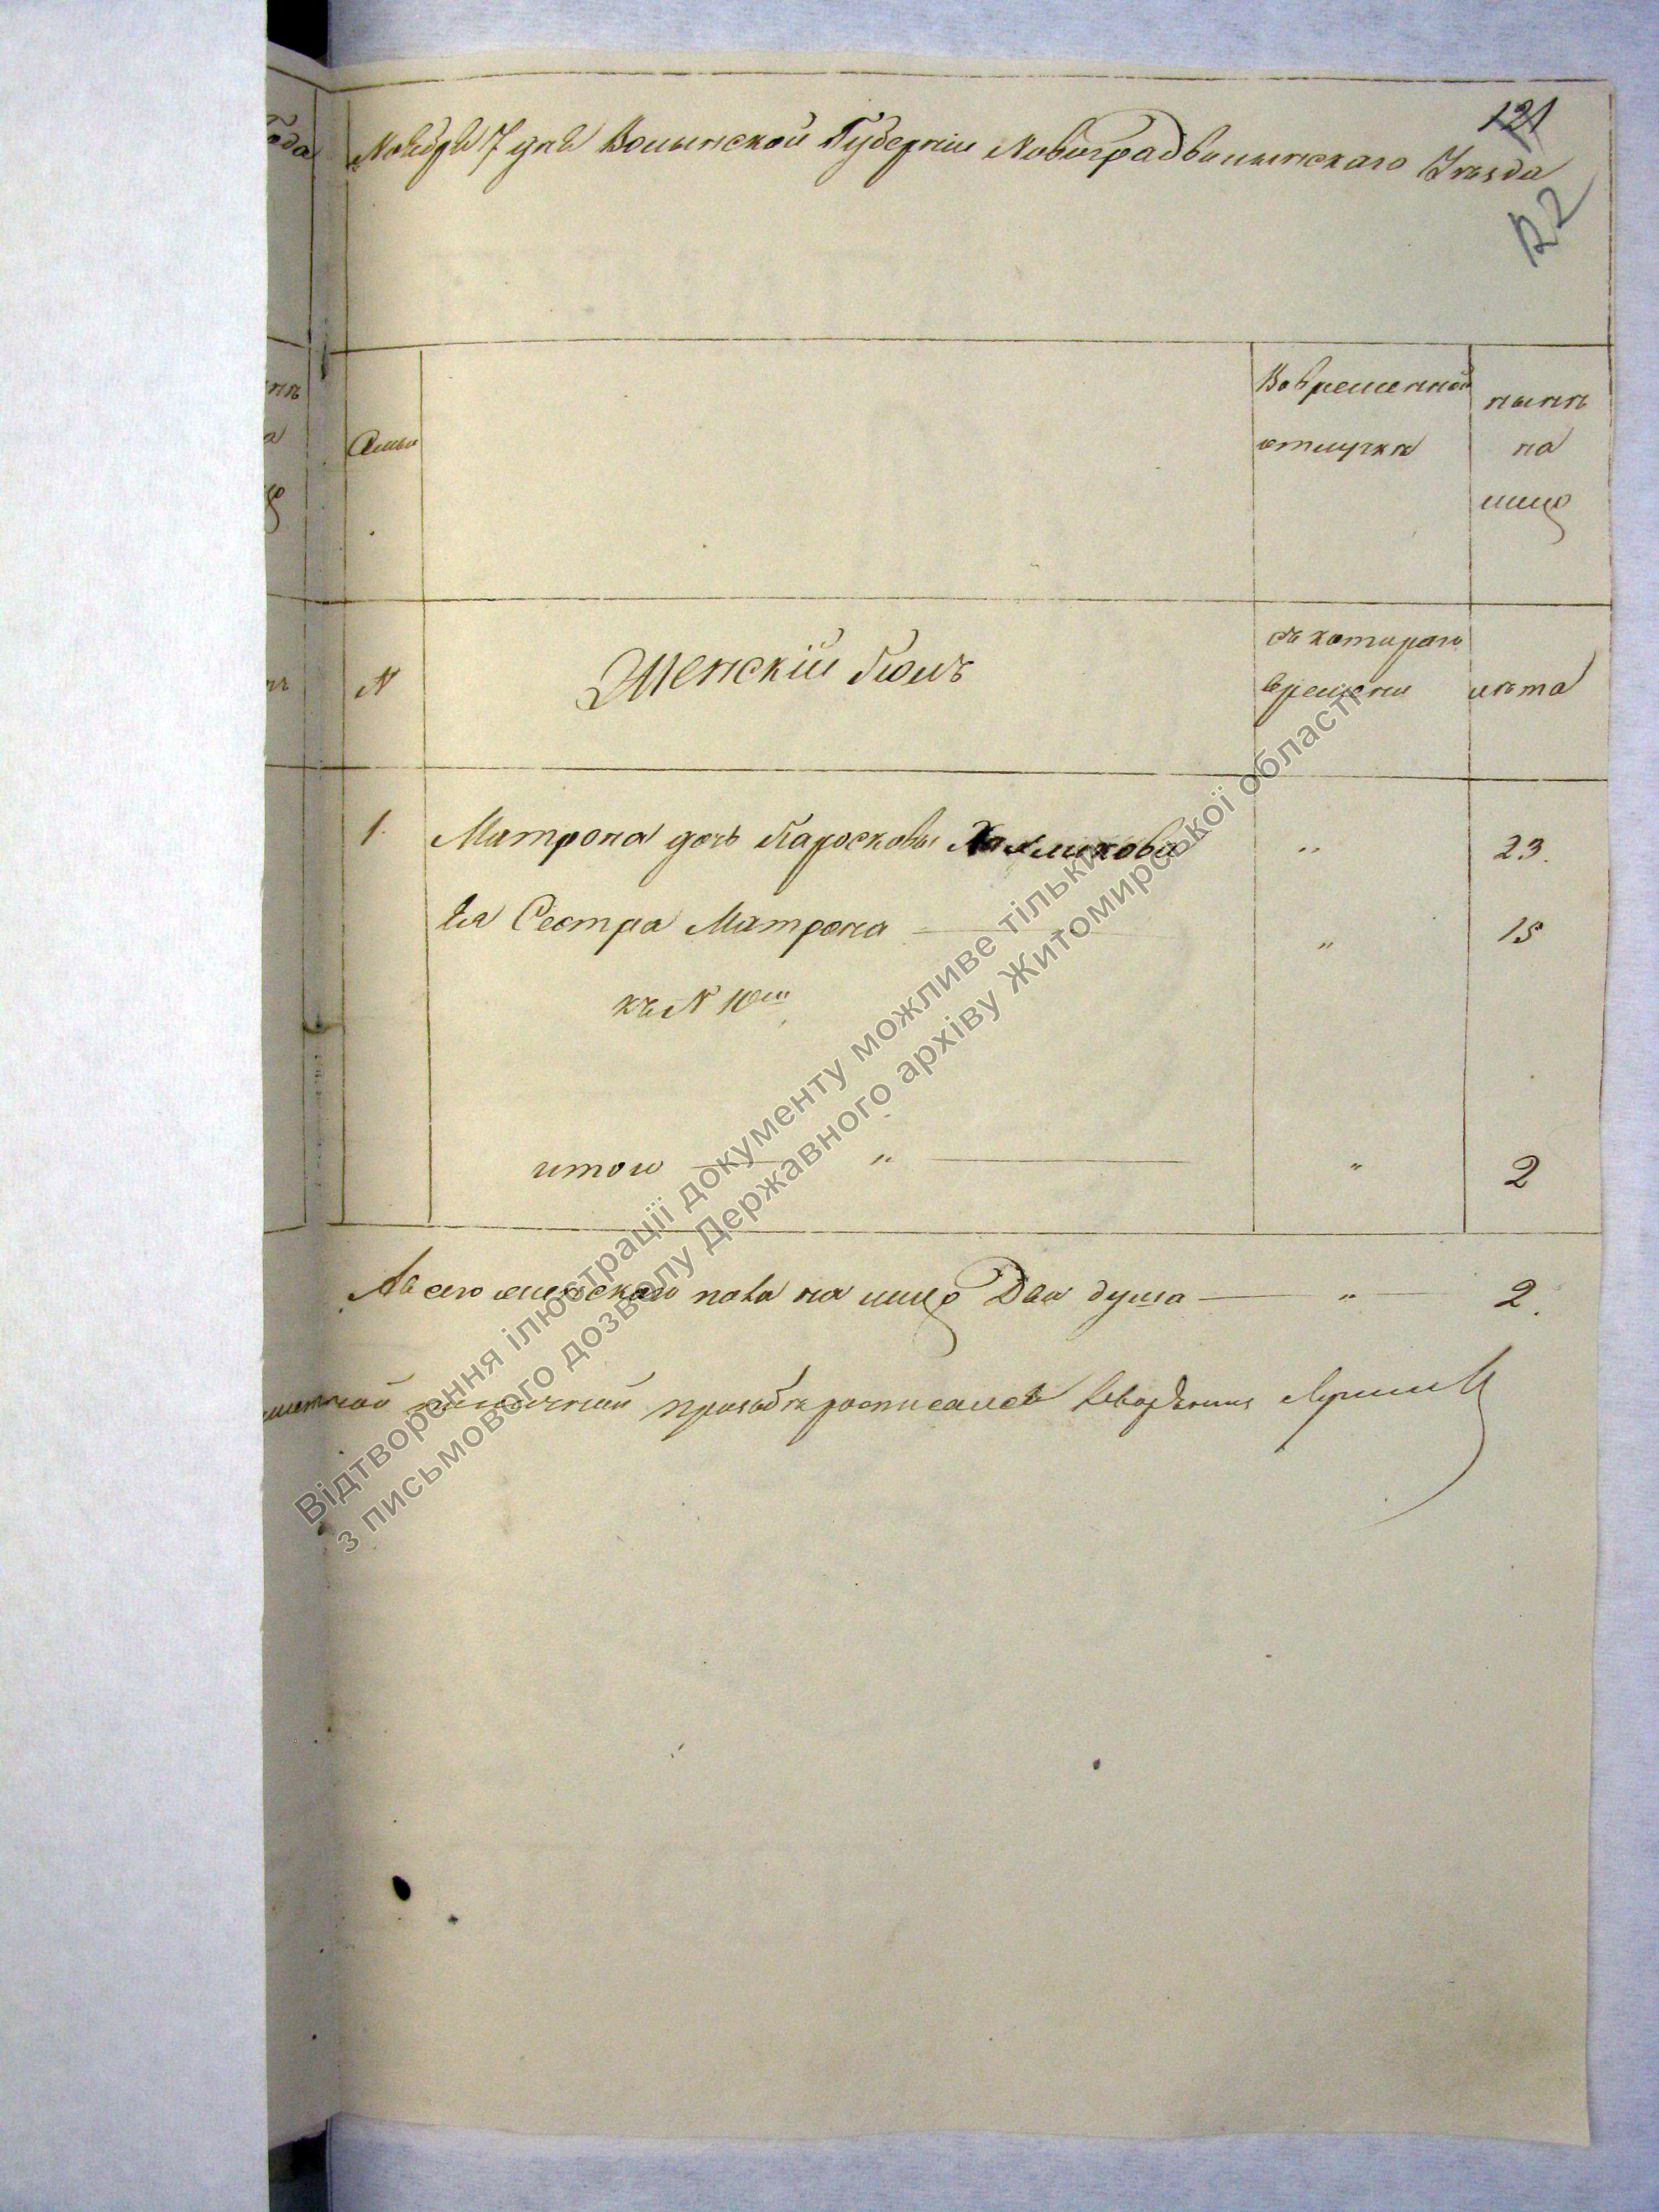 121
Ноября 7 дня Волынской Губерніи Новоградволынскаго Уезда
122
Семьи
Во временной
отлучке
ныне
на
лицо
N
Женскій Полъ
съ котораго
времени
лета
1. Матрона дочь Паросковы " 23.
Ея Сестра Матрона " 15
къ N 10му
итого " " 2
А всего женского пола на лицо Две душа " 2.
росписался
Відтворення ілюстрації документу можливе тільки
з письмового дозволу Державного архіву Житомирської області